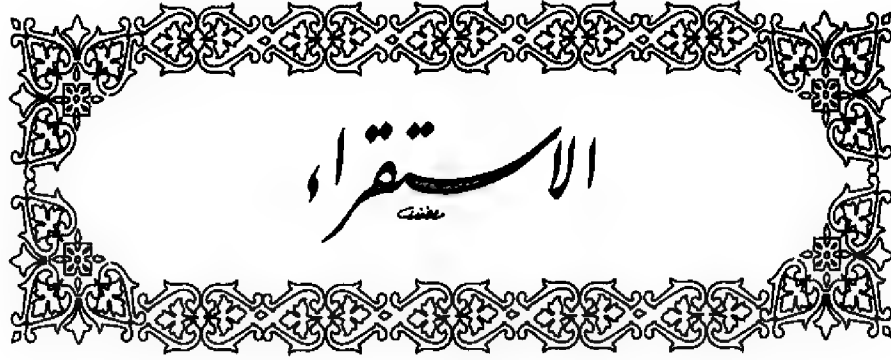 الاستقراء